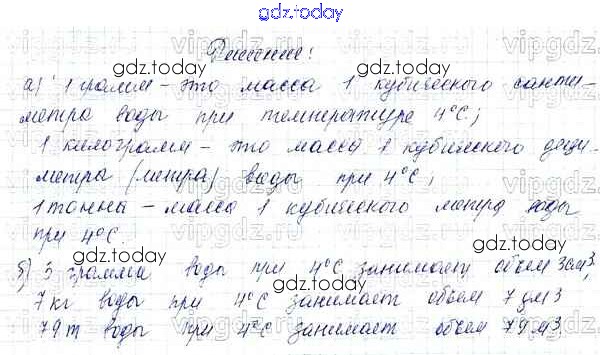 gdz.today
Решение:
а) 1 грамм – это масса 1 кубического санти-
метра воды при температуре 4°С;
1 килограмм – это масса 1 кубического деци-
метра (литра) воды при 4°С;
1 тонны – масса 1 кубического метра воды
при 4°С.
б) 3 грамма воды при 4°С занимает объем 3см³,
7 кг воды при 4°С занимает объем 7 дм³
79 т воды при 4°С занимает объем 79 м³